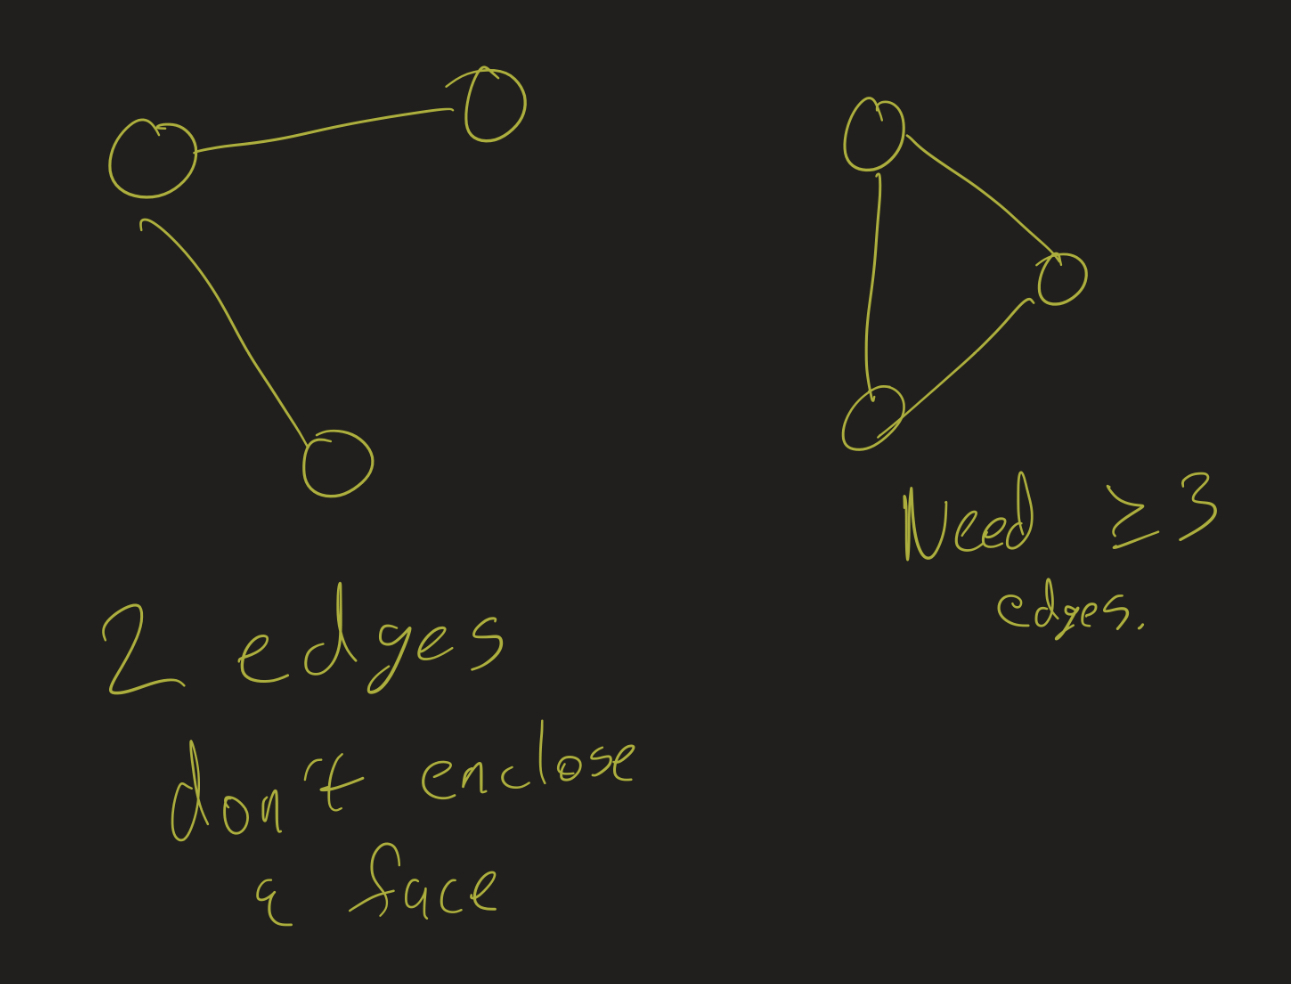 2 edges
don't enclose
a face
Need ≥ 3
edges.